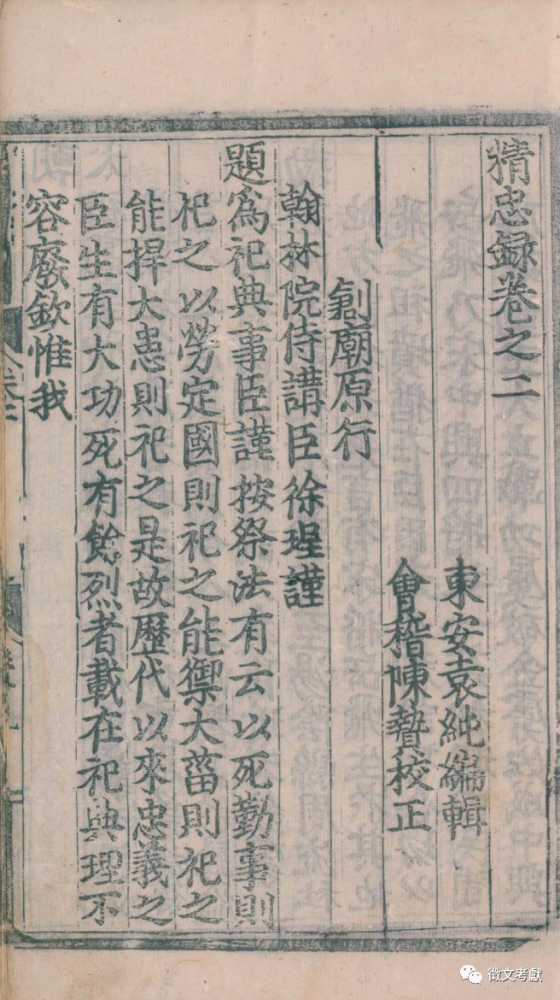 精忠録卷之二
東安袁純編輯
會稽陳贄校正
剏廟原行
翰林院侍講臣徐珵謹
題爲祀典事臣謹按祭法有云以死勤事則
祀之以勞定國則祀之能禦大菑則祀之
能捍大患則祀之是故歷代以來忠義之
臣生有大功死有餘烈者載在祀典理不
容廢欽惟我
微文考獻